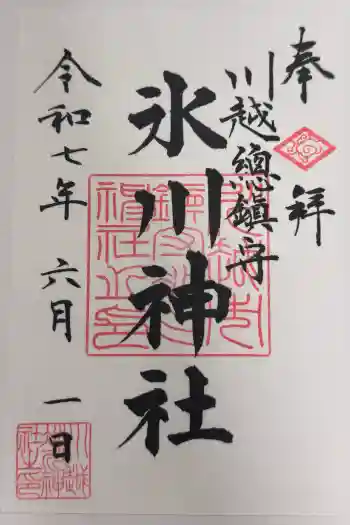 奉拝
川越總鎮守
氷川神社
令和七年 六月 一日